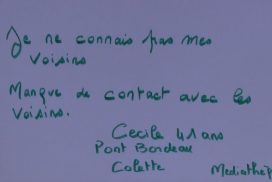 Je ne connais pas mes
voisins
Manque de contact avec les
voisins.
Cecile 41 ans
Pont Bordeau
Colette
Mediathè